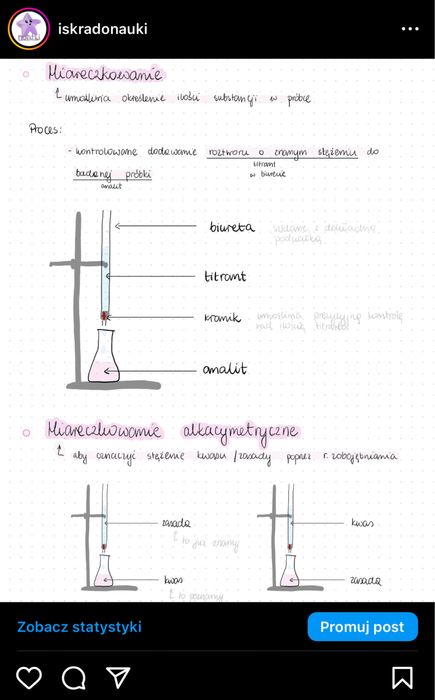 iskradonauki
Miareczkowanie
umożliwia określenie ilości substancji w próbce
Proces:
- kontrolowane dodawanie roztworu o znanym stężeniu do
titrant
w biurecie
badanej próbki
analit
biureta szklana z dokładną
podziałką
titrant
kranik umożliwia precyzyjną kontrolę
nad ilością titranta
analit
Miareczkowanie alkacymetryczne
aby oznaczyć stężenie kwasu / zasady poprzez r. zobojętniania
zasada
to już znamy
kwas
to poznamy
kwas
zasada
Zobacz statystyki
Promuj post